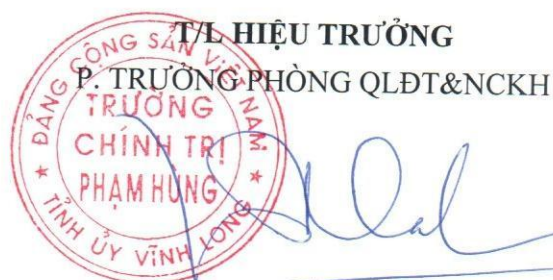 T/L HIỆU TRƯỞNG
P. TRƯỞNG PHÒNG QLĐT&NCKH
ĐẢNG CỘNG SẢN VIỆT NAM
TRƯỜNG
CHÍNH TRỊ
PHẠM HÙNG
TỈNH ỦY VĨNH LONG